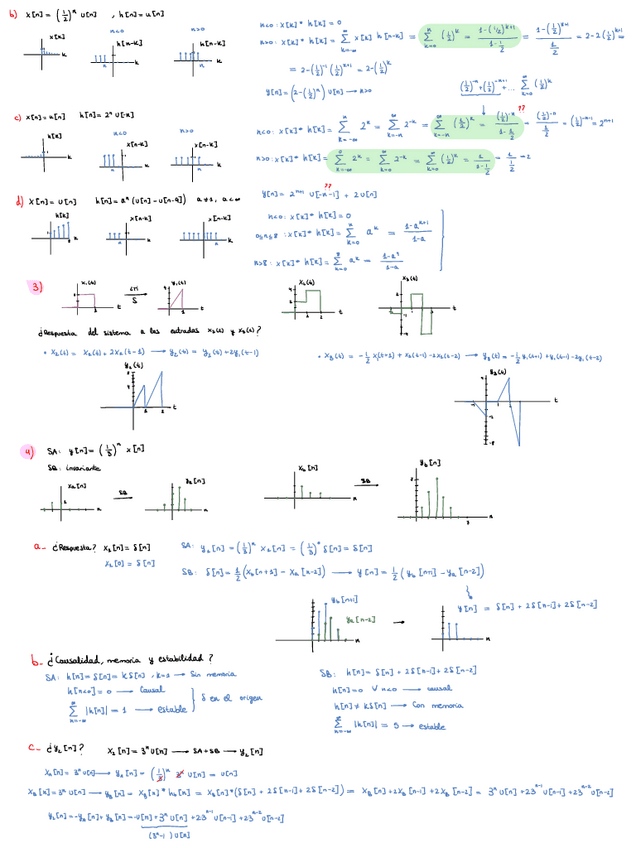 b) x[n] = (1/2)ⁿ u[n] , h[n] = u[n]
n<0 : x[k] * h[k] = 0
x[k] n<0 h[n-k] n>0 h[n-k]
n>0: x[k] * h[k] = Σ x[k] h[n-k] = Σ (1/2)^k
y[n] = (2 - (1/2)ⁿ) u[n] → n>0
c) x[n] = h[n] h[n] = 2ⁿ u[-n]
h[k] n<0 x[n-k] n>0 x[n-k]
??
n<0: x[k] * h[k] = Σ 2^k = Σ 2^-k = Σ (1/2)^k = 2^(n+1)
n>0: x[k] * h[k] = Σ 2^k = Σ 2^-k = Σ (1/2)^k = 2
??
y[n] = 2^(n+1) u[-n-1] + 2u[n]
d) x[n] = u[n] h[n] = aⁿ (u[n] - u[n-9])
h[k] x[n-k] x[n-k]
n<0: x[k] * h[k] = 0
0≤n≤8 : x[k] * h[k] = Σ a^k = (1-a^(n+1))/(1-a)
n>8 : x[k] * h[k] = Σ a^k = (1-a^9)/(1-a)
3)
x₁(t) LTI S y₁(t) x₂(t) x₃(t)
¿Respuesta del sistema a las entradas x₂(t) y x₃(t)?
• x₂(t) = x₁(t) + 2x₁(t-1) → y₂(t) = y₁(t) + 2y₁(t-1)
• x₃(t) = -1/2 x(t+1) + x₁(t-1) - 2x₁(t-2) → y₃(t) = -1/2 y₁(t+1) + y₁(t-1) - 2y₁(t-2)
y₂(t) y₃(t)
4) SA: y[n] = (1/3)ⁿ x[n]
SB: invariante
xa[n] SB ya[n] xb[n] SB yb[n]
a- ¿Respuesta? x₁[n] = δ[n]
SA: y₁[n] = (1/3)ⁿ x₁[n] = (1/3)⁰ δ[n] = δ[n]
SB: δ[n] = 1/2 (xb[n+1] - xa[n-2]) → y[n] = 1/2 (yb[n+1] - ya[n-2])
yb[n+1] ya[n-2] → y[n] = δ[n] + 2δ[n-1] + 2δ[n-2]
b- ¿Causalidad, memoria y estabilidad?
SA: h[n] = δ[n] = kδ[n] , k=1 → Sin memoria
h[n<0] = 0 → Causal
Σ |h[n]| = 1 → estable
δ en el origen
SB: h[n] = δ[n] + 2δ[n-1] + 2δ[n-2]
h[n] = 0 ∀ n<0 → causal
h[n] ≠ kδ[n] → Con memoria
Σ |h[n]| = 5 → estable
c- ¿y₂[n]? x₂[n] = 3ⁿ u[n] → SA+SB → y₂[n]
xA[n] = 3ⁿ u[n] → yA[n] = (1/3)ⁿ 3ⁿ u[n] = u[n]
xB[n] = 3ⁿ u[n] → yB[n] = xB[n] * hB[n] = xB[n] * (δ[n] + 2δ[n-1] + 2δ[n-2]) = xB[n] + 2xB[n-1] + 2xB[n-2] = 3ⁿ u[n] + 2·3ⁿ⁻¹ u[n-1] + 2·3ⁿ⁻² u[n-2]
y₂[n] = -yA[n] + yB[n] = -u[n] + 3ⁿ u[n] + 2·3ⁿ⁻¹ u[n-1] + 2·3ⁿ⁻² u[n-2]
(3ⁿ-1) u[n]